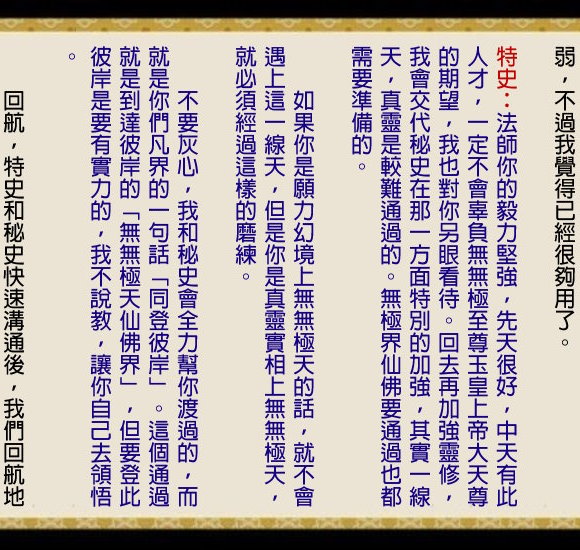 弱，不過我覺得已經很夠用了。
特史：法師你的毅力堅強，先天很好，中天有此
人才，一定不會辜負無無極至尊玉皇上帝大天尊
的期望，我也對你另眼看待。回去再加強靈修，
我會交代秘史在那一方面特別的加強，其實一線
天，真靈是較難通過的。無極界仙佛要通過也都
需要準備的。
如果你是願力幻境上無無極天的話，就不會
遇上這一線天，但是你是真靈實相上無無極天，
就必須經過這樣的磨練。
不要灰心，我和秘史會全力幫你渡過的，而
就是你們凡界的一句話「同登彼岸」。這個通過
就是到達彼岸的「無無極天仙佛界」，但要登此
彼岸是要有實力的，我不說教，讓你自己去領悟
。
回航，特史和秘史快速溝通後，我們回航地